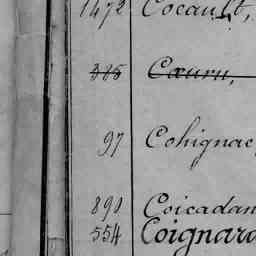 1472 Cocault,
385 Cœuru,
97 Cohignac
890 Coicadan
554 Coignard